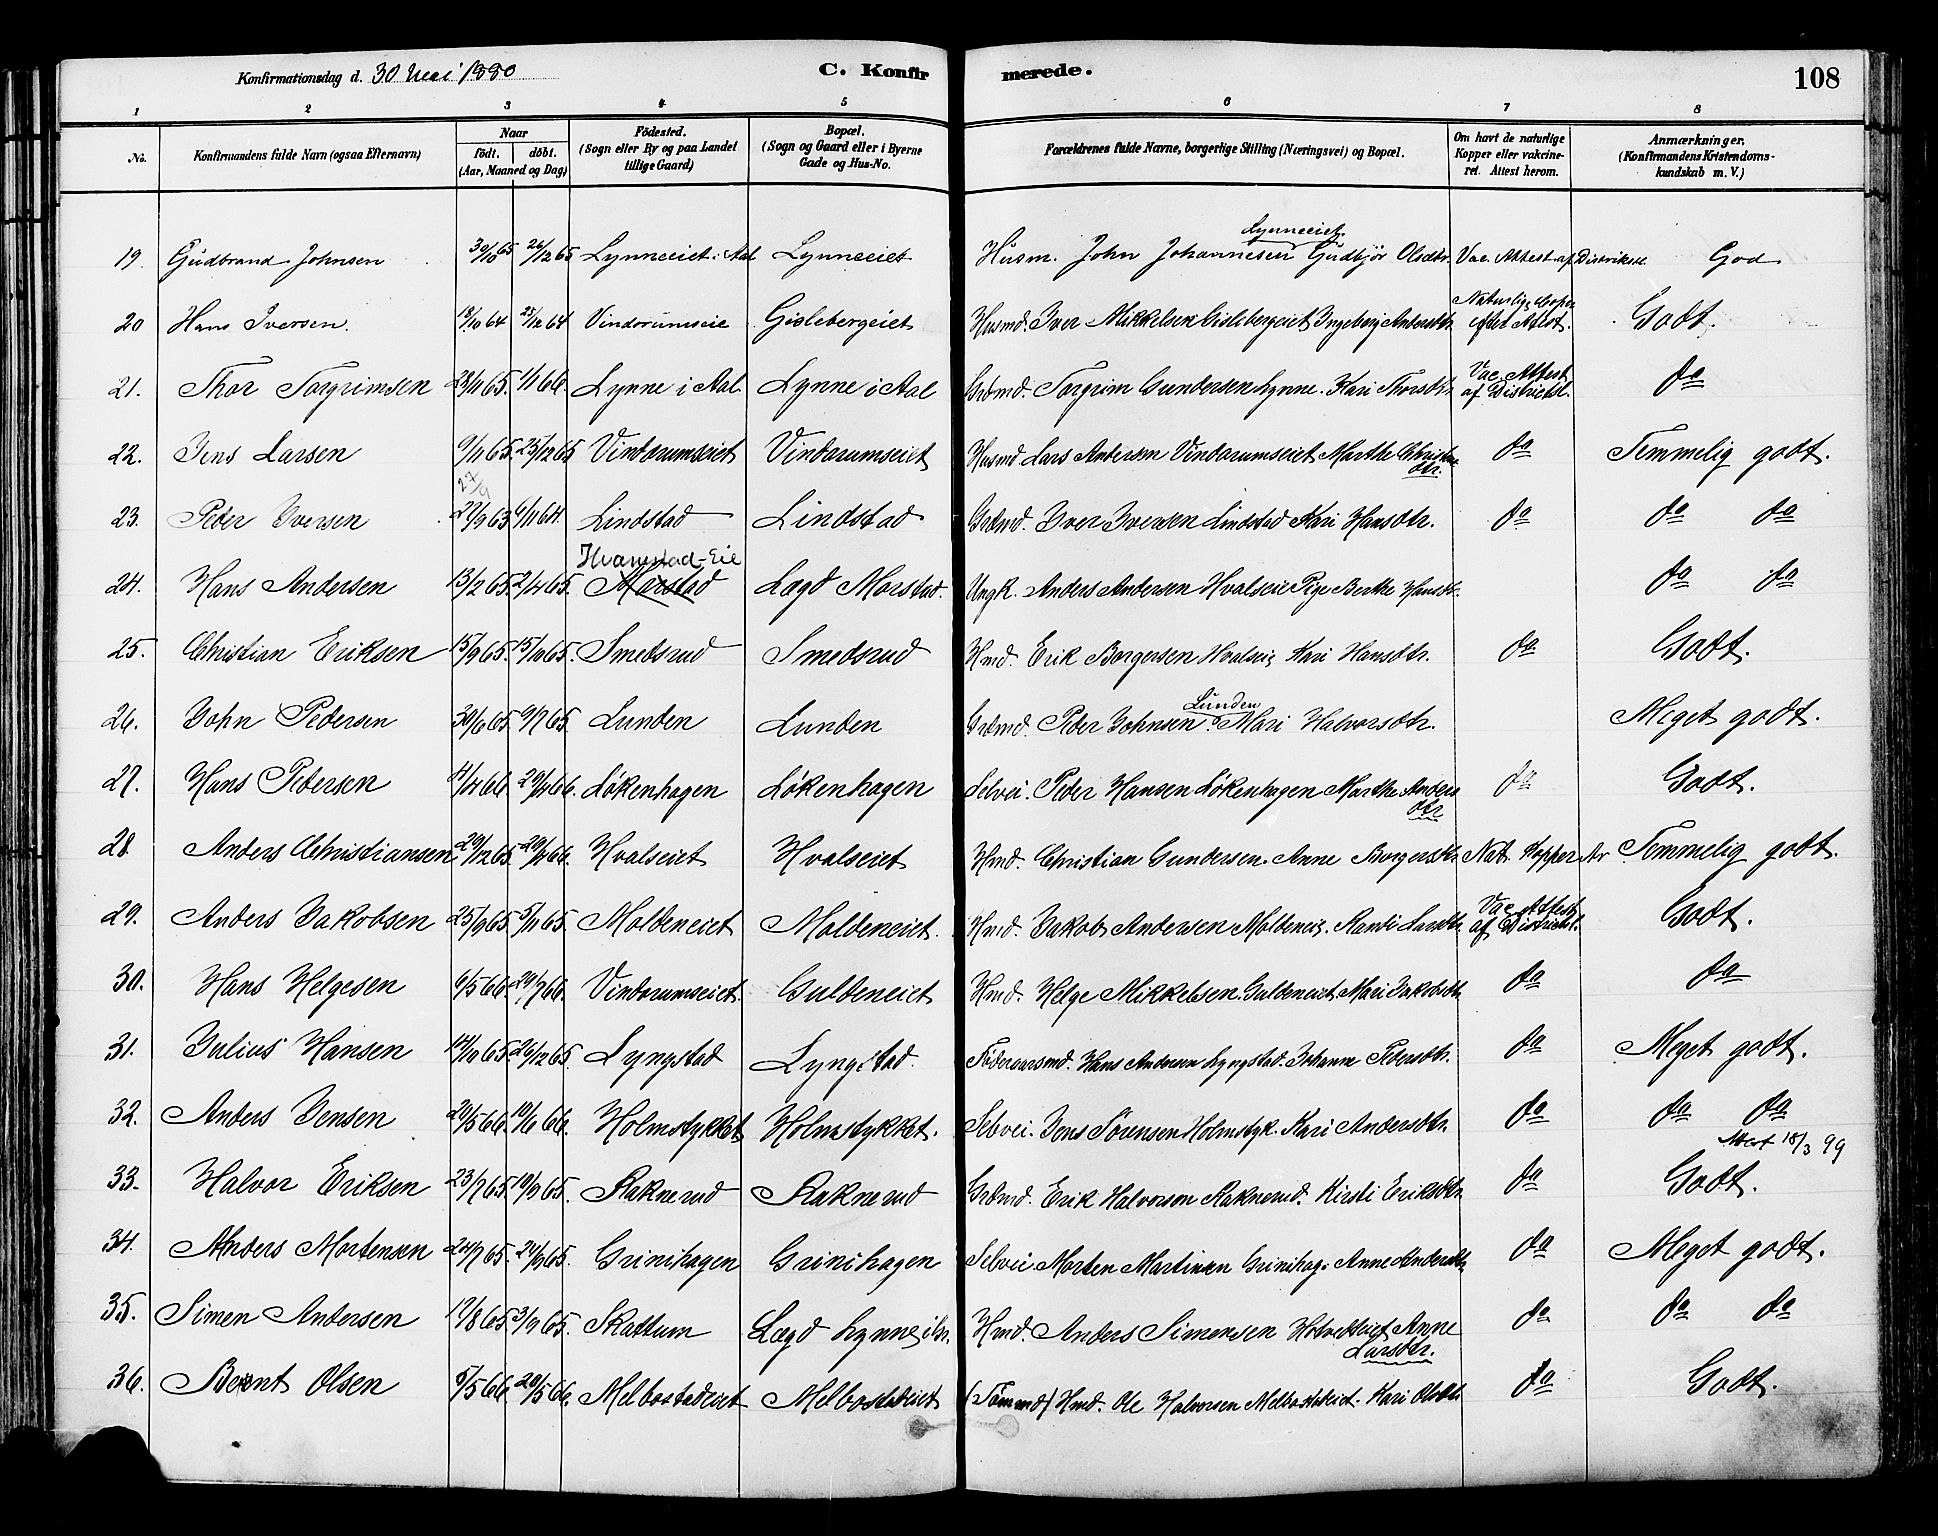 Konfirmationsdag d. 30 Mai 1880 C. Konfirmerede. 108
1 2 3 4 5 6 7 8
No. Konfirmandens fulde Navn (ogsaa Efternavn) Naar født. døbt. (Aar, Maaned og Dag) Födested. (Sogn eller By og paa Landet tillige Gaard) Bopæl. (Sogn og Gaard eller i Byerne Gade og Hus-No. Forældrenes fulde Navne, borgerlige Stilling (Næringsvei) og Bopæl. Om havt de naturlige Kopper eller vakcineret. Attest herom. Anmærkninger. (Konfirmandens Kristendomskundskab m. V.)
Lynneeiet
19. Gudbrand Johnsen 30/10 65 26/12 65 Lynneeiet i Aal Lynneeiet Husm. John Johannesen Gudbjør Olsdtr. Vac. Attest af Distriktsl. God
20 Hans Iversen. 18/10 64 25/12 64 Vindorumseie Gislebergeiet Husmd. Iver Mikkelsen Gislebergeiet Ingeborg Andersdtr. Naturlige Coper efter Attest. Godt.
21. Thor Torgrimsen 28/11 65. 1/1 66. Lynne i Aal. Lynne i Aal Grdmd. Torgrim Gundersen Lynne. Kari Thorsdtr. Vac. Attest af Districtsl. do
22. Jens Larsen 9/11 65. 25/12 65 Vindorumseiet Vindorumseiet Husmd Lars Andersen Vindorumseiet Marthe Christensdtr. do Temmelig godt.
27/9
23. Peder Iversen 27/9 63 6/11 64. Lindstad Lindstad Grdmd. Iver Iversen Lindstad Kari Hansdtr. do do do
Hvamstad-Eie
24. Hans Andersen 13/2 65. 2/4 65. Morstad Lægd Morstad. Ungk. Anders Andersen Hvalseie Pige Berthe Hansdtr. do do
25. Christian Eriksen 15/9 65. 15/10 65. Smedsrud Smedsrud Hmd. Erik Borgersen Hvalsei; Kari Hansdtr. do Godt.
Lunden
26. John Pedersen 30/6 65. 9/7 65. Lunden Lunden Grdmd. Peder Johnsen. Mari Halvorsdtr. Meget godt.
27. Hans Pedersen 4/4 66. 29/4 66. Løkenhagen Løkenhagen Selvei. Peder Hansen Løkenhagen Marthe Andersdtr do Godt.
28. Anders Christiansen 29/12 65. 29/4 66. Hvalseiet Hvalseiet Hmd. Christian Gundersen. Anne Borgersdtr Nat. Kopper Ar Temmelig godt.
29. Anders Jakobsen 25/9 65. 5/11 65. Moldeneiet Moldeneiet. Hmd. Jakob Andersen Moldenei. Randi Larsdtr. Vac. Attest af Districtsl. Godt.
30. Hans Helgesen 6/5 66. 29/7 66. Vindorumseiet Guldeneiet Hmd. Helge Mikkelsen. Guldeneiet Mari Jakobsdtr. do do
31. Julius Hansen 14/10 65. 26/12 65. Lyngstad Lyngstad. Føderaadsmd. Hans Andersen Lyngstad. Johanne Pedersdtr. do Meget godt.
32. Anders Jensen 20/5 66. 10/6 66. Holmstykket Holmstykket. Selvei. Jens Sørensen Holmstyk. Kari Andersdtr. do do do
Attest 18/3 99
33. Halvor Eriksen 23/7 65. 10/9 65. Raknerud Raknerud Grdmd. Erik Halvorsen Raknerud. Kirsti Eriksdtr. do Godt.
34. Anders Mortensen 24/7 65. 24/9 65. Grinihagen Grinihagen Selvei. Morten Martinsen Grinihag. Anne Andersdtr. do Meget godt.
35. Simen Andersen 17/8 65. 3/9 65. Skattum Lægd Lynne i Br. Hmd. Anders Simensen Anne Larsdtr. do do do
36. Bernt Olsen 5/5 66. 20/5 66. Melbostadeiet Melbostadeiet (Tømmd) Hmd. Ole Halvorsen Melbostadeiet. Kari Olsdtr. do Godt.